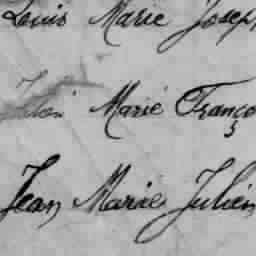 Louis Marie Joseph
Marie Franço
Jean Marie Julien